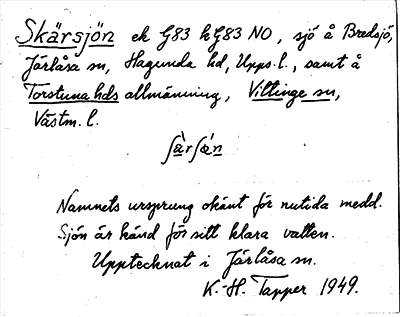 Skärsjön ek G83 h G83 NO, sjö å Bredsjö,
Järlåsa sn, Hagunda hd, Upps. l., samt å
Torstuna hds allmänning, Vittinge sn,
Västm. l.
Namnets ursprung okänt för nutida medd.
Sjön är känd för sitt klara vatten.
Upptecknat i Järlåsa sn.
K.-H. Tapper 1949.